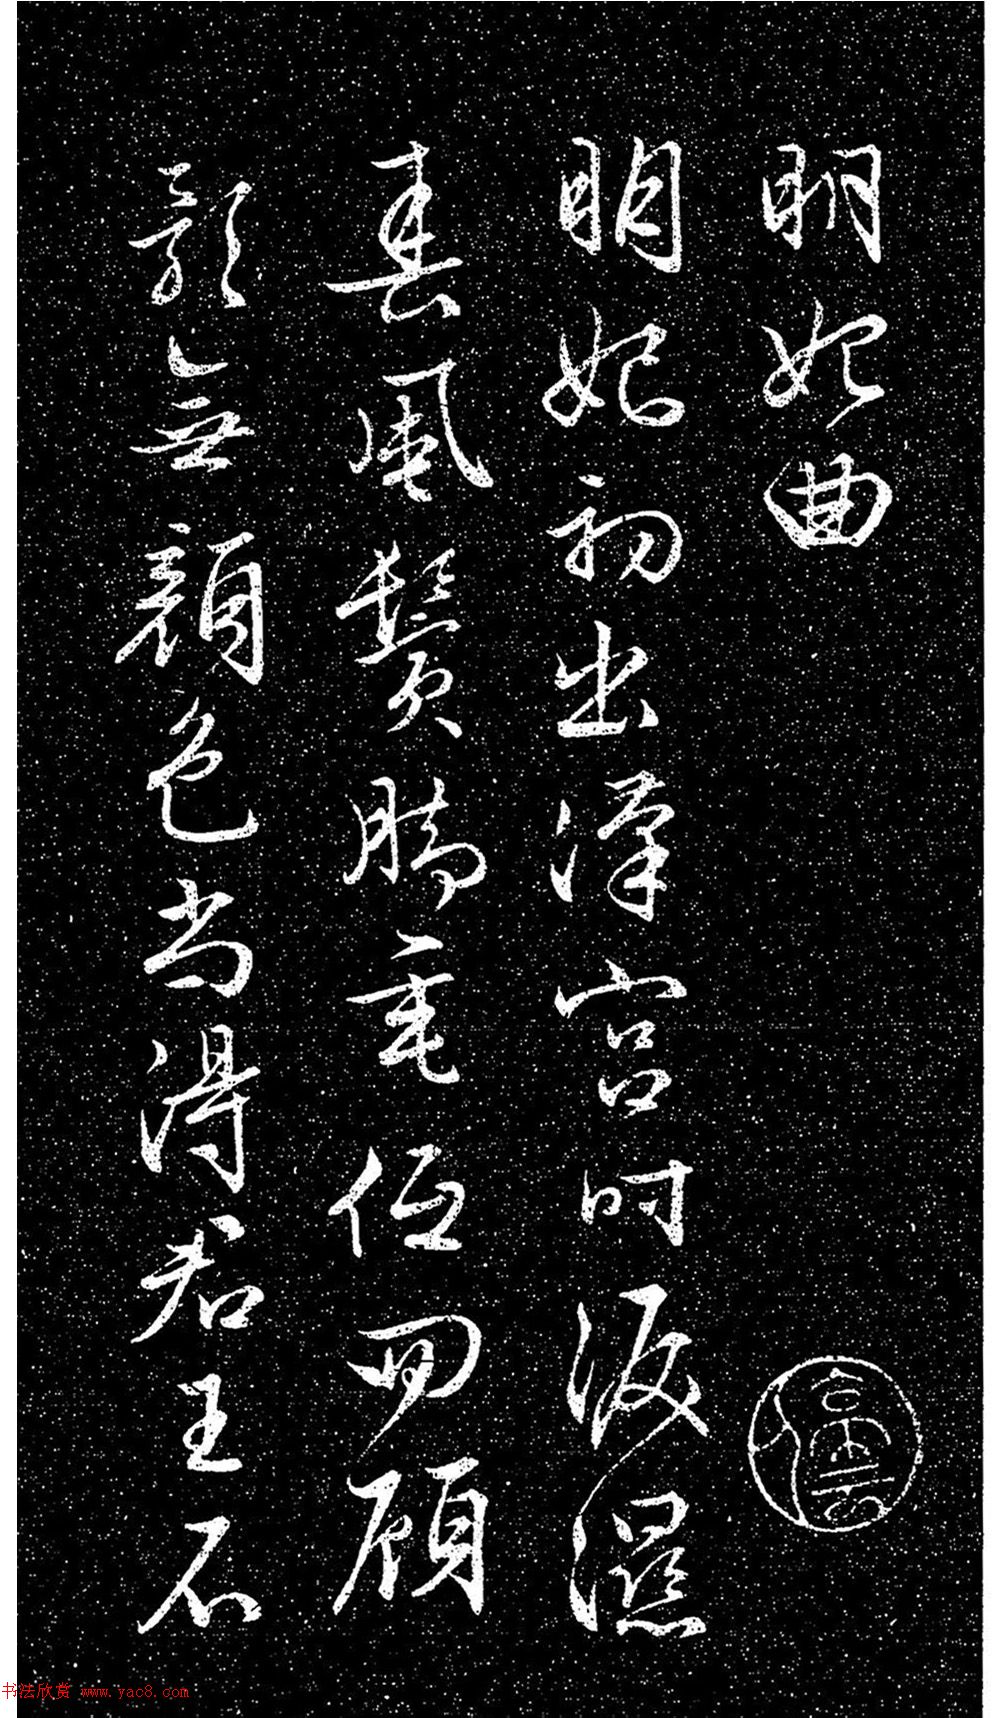 明妃曲
明妃初出漢宮時淚濕
春風鬢脚垂低回顧
影無顏色尚得君王不
书法欣赏 www.yac8.com